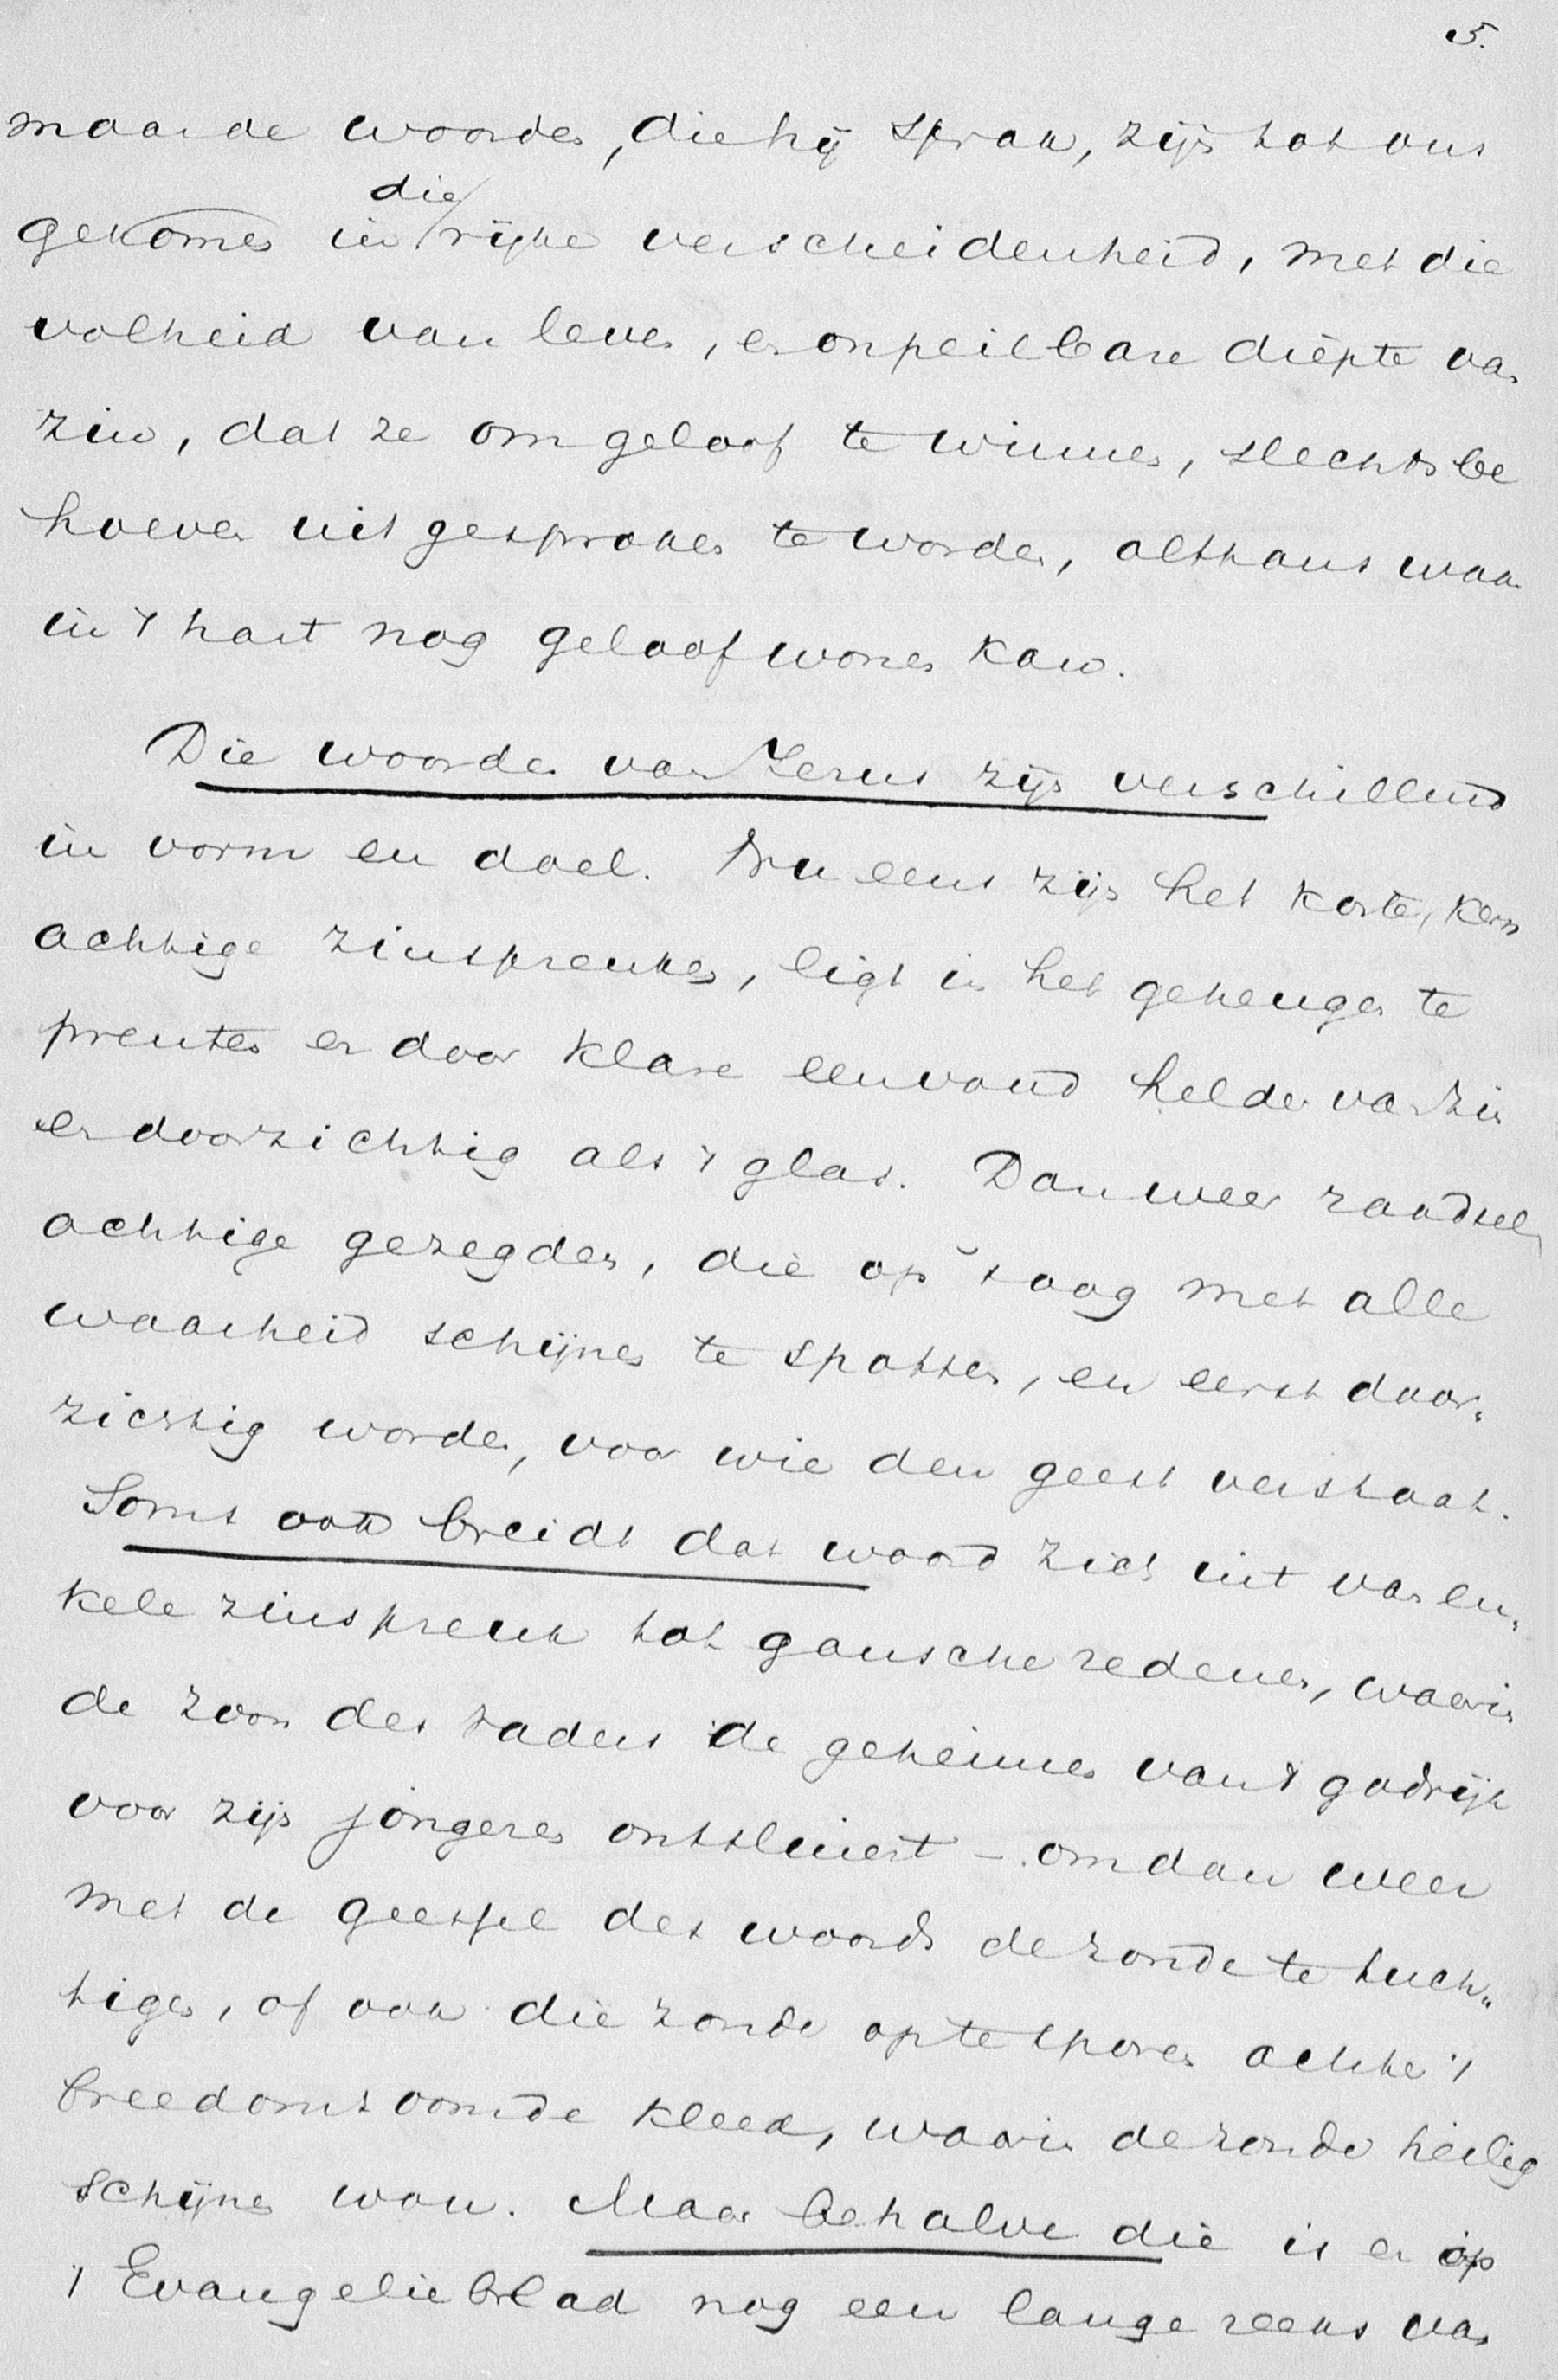 5.
maar de woorden, die hij sprak, zijn tot ons
gekomen in die rijke verscheidenheid, met die
volheid van leven, en onpeilbare diepte van
zin, dat ze om geloof te winnen, slechts be
hoeven uitgesproken te worden, althans waar
in 't hart nog geloof wonen kan.
Die woorden van Jezus zijn verschillend
in vorm en doel. Nu eens zijn het korte, kern
achtige zinspreuken, ligt in het geheugen te
prenten en door klare eenvoud helder van zin
en doorzichtig als 't glas. Dan weer raadsel
achtige gezegden, die op 't oog met alle
waarheid schijnen te spotten, en eerst door„
zichtig worden, voor wie den geest verstaat.
Soms ook breidt dat woord zich uit van en„
kele zinspreuk tot gansche redenen, waarin
de zoon des vaders de geheimen van 't godsrijk
voor zijn jongeren ontsluiert – om dan weer
met de geesel des woords de zonde te tuch„
tigen, of ook die zonde op te sporen achter 't
breedomzoomde kleed, waarin de zonde heilig
schijnen wou. Maar behalve die is er op
't Evangelieblad nog een lange reeks van